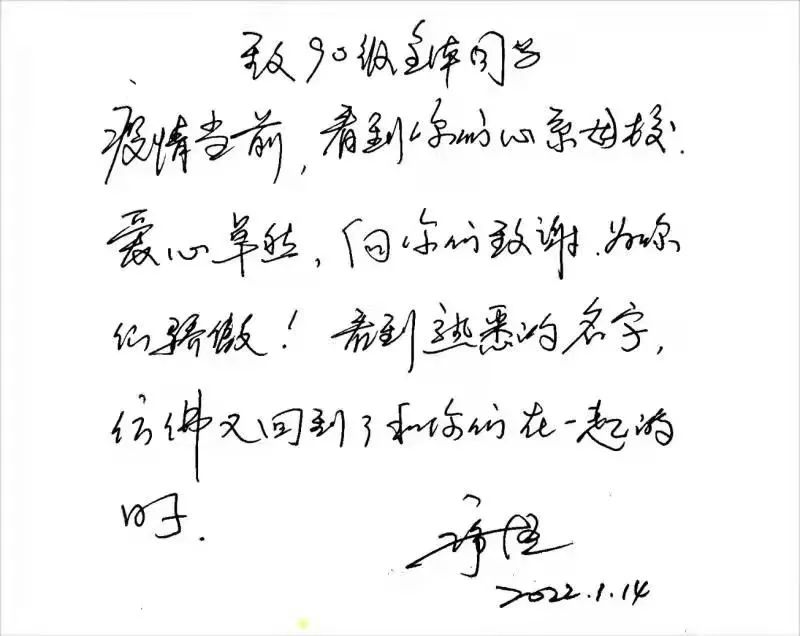 致90级全体同学
疫情当前，看到你们心系母校.
爱心卓然，向你们致谢.为你
们骄傲！看到熟悉的名字，
仿佛又回到了和你们在一起的
时.
2022.1.14